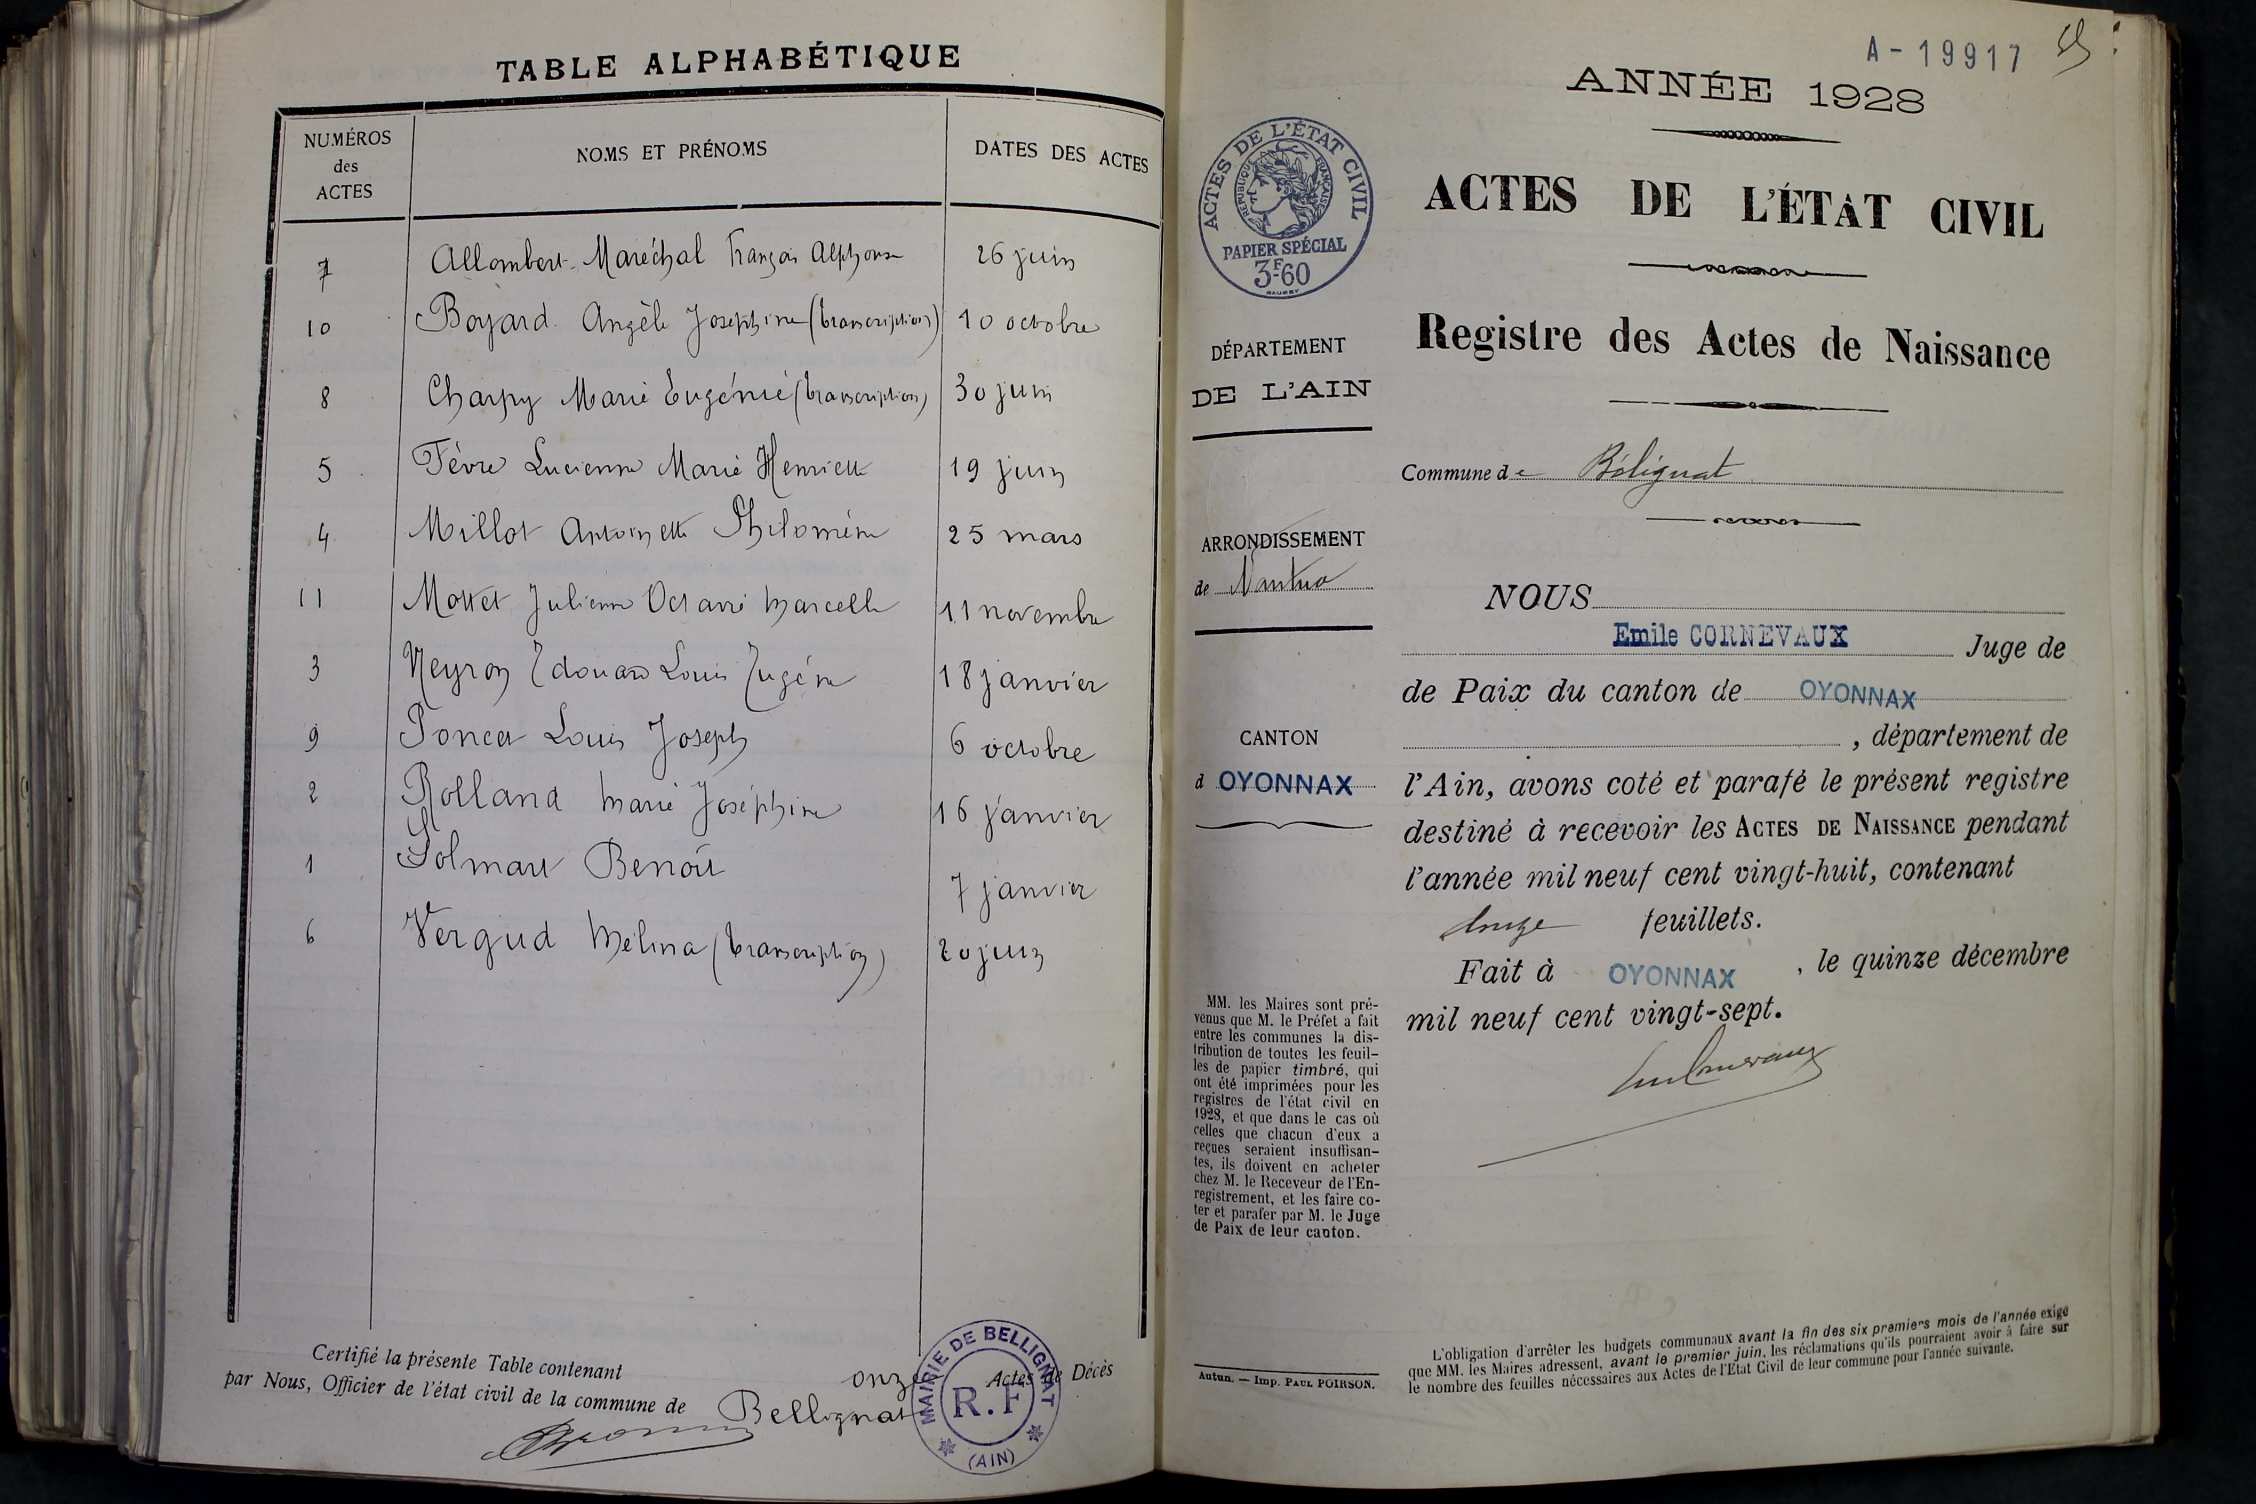 TABLE ALPHABÉTIQUE
NUMÉROS des ACTES NOMS ET PRÉNOMS DATES DES ACTES
7 Allombert-Maréchal François Alphonse 26 juin
10 Boyard Angèle Joséphine (transcription) 10 octobre
8 Charpy Marie Eugénie (transcription) 30 juin
5 Fèvre Lucienne Marie Henriette 19 juin
4 Millot Antoinette Philomène 25 mars
11 Mottet Julienne Octavie Marcelle 11 novembre
3 Neyron Edouard Louis Eugène 18 janvier
9 Poncet Louis Joseph 6 octobre
2 Rolland Marie Joséphine 16 janvier
1 Benoît 7 janvier
6 Mélina (transcription) 20 juin
Certifié la présente Table contenant onze Actes de Décès
par Nous, Officier de l'état civil de la commune de Bellignat
MAIRIE DE BELLIGNAT
R.F
(AIN)
A - 19917
ANNÉE 1928
ACTES DE L'ÉTAT CIVIL
RÉPUBLIQUE FRANÇAISE
PAPIER SPÉCIAL
3F-60
DÉPARTEMENT
DE L'AIN
ARRONDISSEMENT
de Nantua
CANTON
d OYONNAX
MM. les Maires sont pré-
venus que M. le Préfet a fait
entre les communes la dis-
tribution de toutes les feuil-
les de papier timbré, qui
ont été imprimées pour les
registres de l'état civil en
1928, et que dans le cas où
celles que chacun d'eux a
reçues seraient insuffisan-
tes, ils doivent en acheter
chez M. le Receveur de l'En-
registrement, et les faire co-
ter et parafer par M. le Juge
de Paix de leur canton.
Autun. — Imp. PAUL POIRSON.
ACTES DE L'ÉTAT CIVIL
Registre des Actes de Naissance
Commune de Bélignat
NOUS
Emile CORNEVAUX Juge de
de Paix du canton de OYONNAX
, département de
l'Ain, avons coté et parafé le présent registre
destiné à recevoir les ACTES DE NAISSANCE pendant
l'année mil neuf cent vingt-huit, contenant
feuillets.
Fait à OYONNAX , le quinze décembre
mil neuf cent vingt-sept.
L'obligation d'arrêter les budgets communaux avant la fin des six premiers mois de l'année exige
que MM. les Maires adressent, avant le premier juin, les réclamations qu'ils pourraient avoir à faire sur
le nombre des feuilles nécessaires aux Actes de l'Etat Civil de leur commune pour l'année suivante.